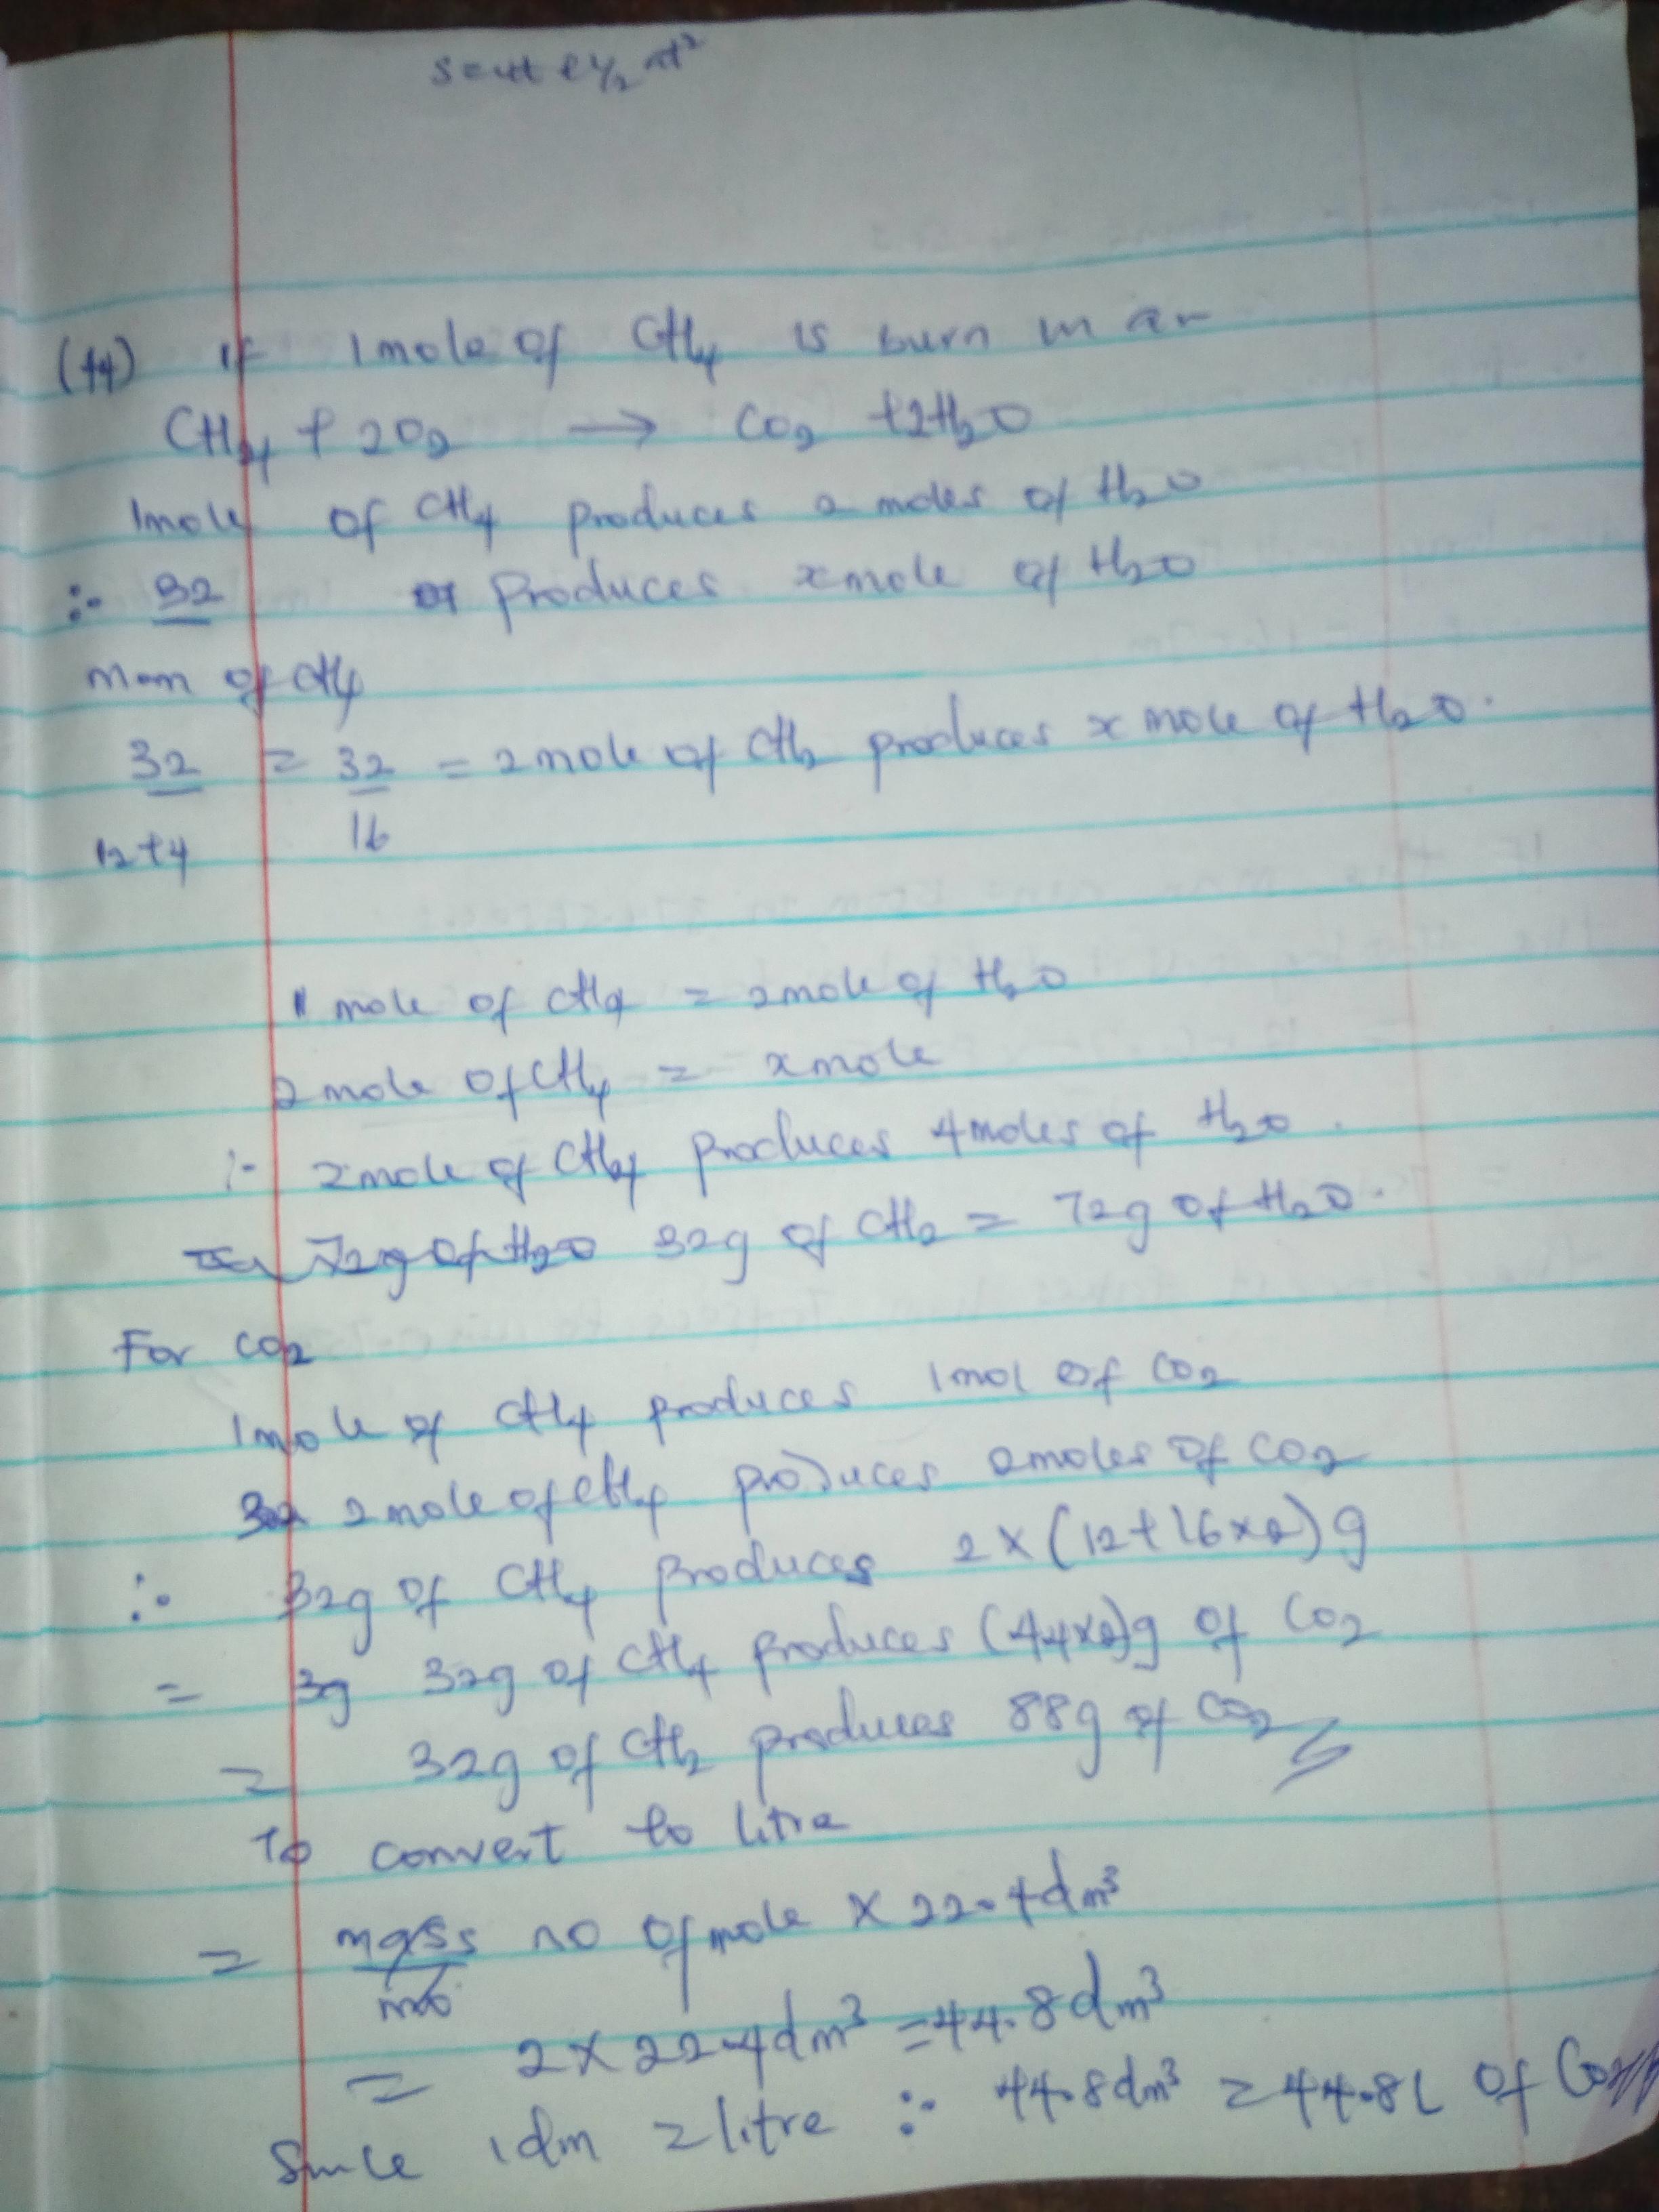 s = ut + 1/2 at²
(44) If 1mole of CH4 is burn in air
CH4 + 2O2 → CO2 + 2H2O
1mole of CH4 produces 2 moles of H2O
∴ 32 produces x mole of H2O
mom of CH4
32 = 32 = 2 mole of CH2 produces x mole of H2O.
12+4 16
1 mole of CH4 = 2 mole of H2O
2 mole of CH4 = x mole
∴ 2 mole of CH4 produces 4 moles of H2O.
72g of H2O 32g of CH2 = 72g of H2O.
For CO2
1mole of CH4 produces 1mol of CO2
32 2 mole of CH4 produces 2 moles of CO2
∴ 32g of CH4 produces 2 × (12+16×2)g
= 3g 32g of CH4 produces (44×2)g of CO2
= 32g of CH2 produces 88g of CO2
To convert to litre
= mass no of mole × 22.4dm³
= 2 × 22.4dm³ = 44.8dm³
Since 1dm = litre ∴ 44.8dm³ = 44.8L of CO2